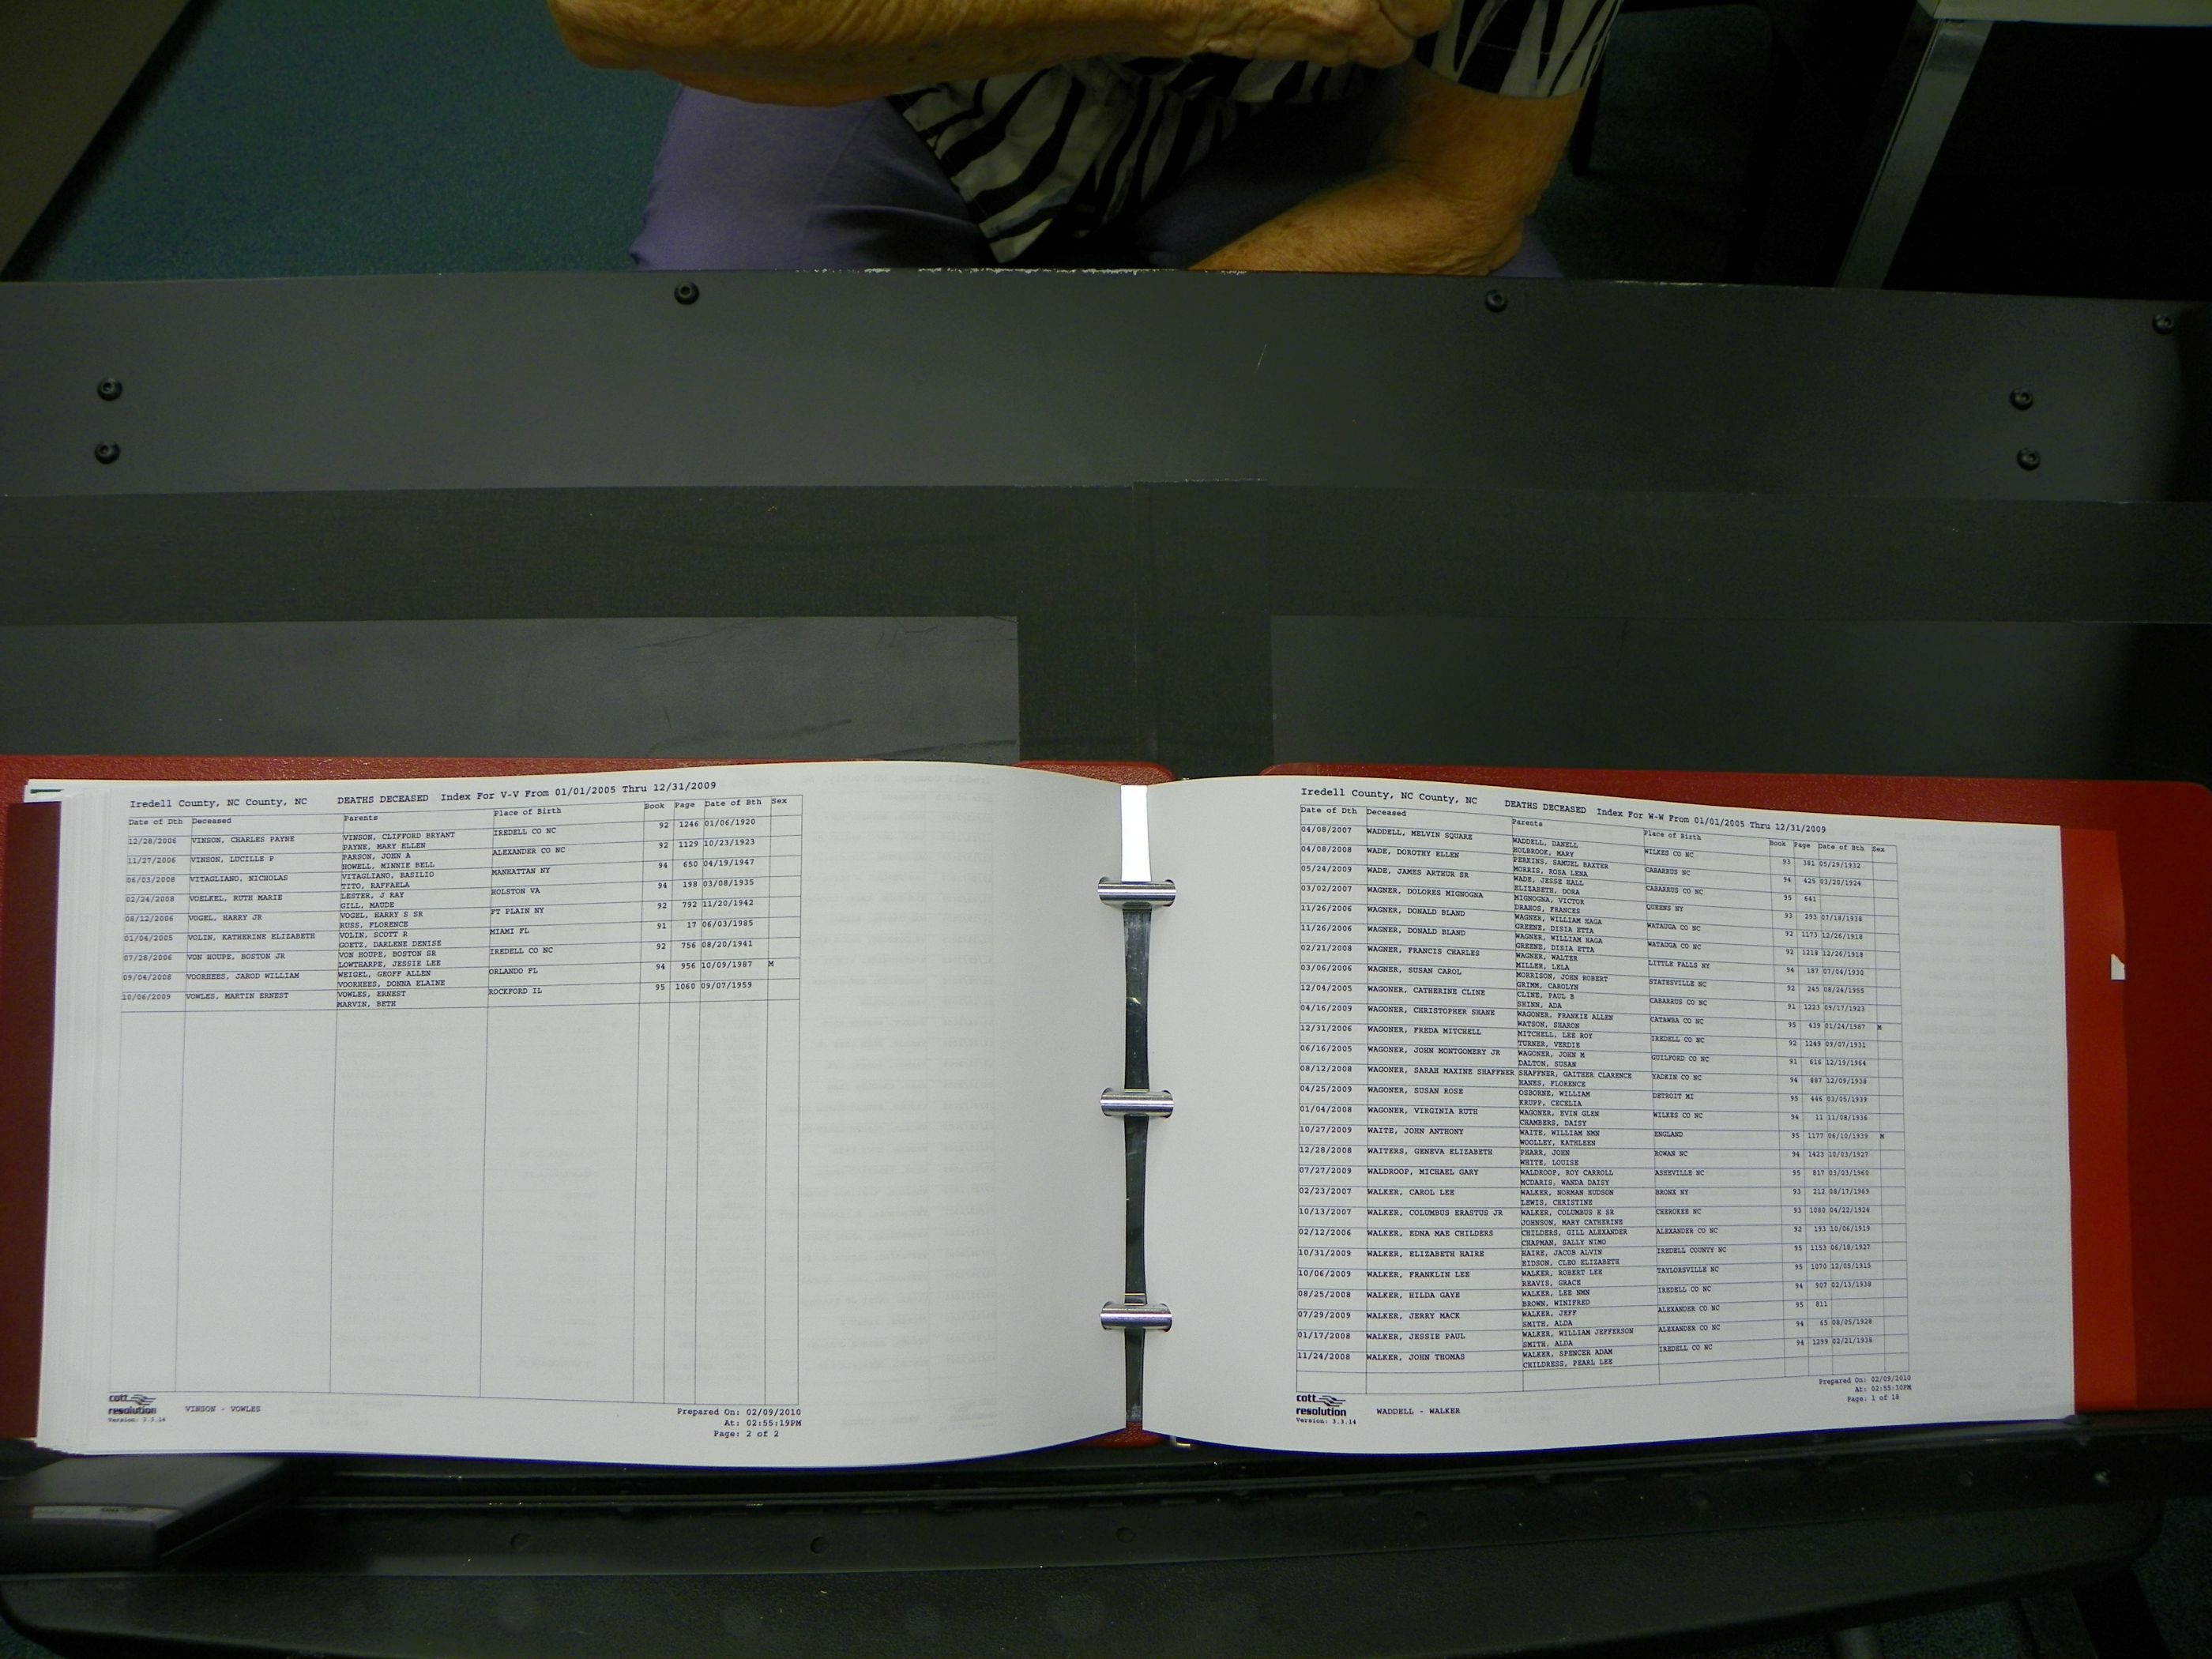 Iredell County, NC County, NC DEATHS DECEASED Index For V-V From 01/01/2005 Thru 12/31/2009
Date of Dth Deceased Parents Place of Birth Book Page Date of Bth Sex
12/28/2006 VINSON, CHARLES PAYNE VINSON, CLIFFORD BRYANT IREDELL CO NC 92 1246 01/06/1920
PAYNE, MARY ELLEN
11/27/2006 VINSON, LUCILLE P PARSON, JOHN A ALEXANDER CO NC 92 1129 10/23/1923
HOWELL, MINNIE BELL
06/03/2008 VITAGLIANO, NICHOLAS VITAGLIANO, BASILIO MANHATTAN NY 94 650 04/19/1947
TITO, RAFFAELA
02/24/2008 VOELKEL, RUTH MARIE LESTER, J RAY HOLSTON VA 94 198 03/08/1935
GILL, MAUDE
08/12/2006 VOGEL, HARRY JR VOGEL, HARRY S SR FT PLAIN NY 92 792 11/20/1942
RUSS, FLORENCE
01/04/2005 VOLIN, KATHERINE ELIZABETH VOLIN, SCOTT R MIAMI FL 91 17 06/03/1985
GOETZ, DARLENE DENISE
07/28/2006 VON HOUPE, BOSTON JR VON HOUPE, BOSTON SR IREDELL CO NC 92 756 08/20/1941
LOWTHARPE, JESSIE LEE
09/04/2008 VOORHEES, JAROD WILLIAM WEIGEL, GEOFF ALLEN ORLANDO FL 94 956 10/09/1987 M
VOORHEES, DONNA ELAINE
10/06/2009 VOWLES, MARTIN ERNEST VOWLES, ERNEST ROCKFORD IL 95 1060 09/07/1959
MARVIN, BETH
cott
resolution
Version: 3.3.14
VINSON - VOWLES
Prepared On: 02/09/2010
At: 02:55:19PM
Page: 2 of 2
Iredell County, NC County, NC DEATHS DECEASED Index For W-W From 01/01/2005 Thru 12/31/2009
Date of Dth Deceased Parents Place of Birth Book Page Date of Bth Sex
04/08/2007 WADDELL, MELVIN SQUARE WADDELL, DANELL WILKES CO NC 93 381 05/29/1932
HOLBROOK, MARY
04/08/2008 WADE, DOROTHY ELLEN PERKINS, SAMUEL BAXTER CABARRUS NC 94 425 03/20/1924
MORRIS, ROSA LENA
05/24/2009 WADE, JAMES ARTHUR SR WADE, JESSE HALL CABARRUS CO NC 95 641
ELIZABETH, DORA
03/02/2007 WAGNER, DOLORES MIGNOGNA MIGNOGNA, VICTOR QUEENS NY 93 293 07/18/1938
DRAHOS, FRANCES
11/26/2006 WAGNER, DONALD BLAND WAGNER, WILLIAM HAGA WATAUGA CO NC 92 1173 12/26/1918
GREENE, DISIA ETTA
11/26/2006 WAGNER, DONALD BLAND WAGNER, WILLIAM HAGA WATAUGA CO NC 92 1218 12/26/1918
GREENE, DISIA ETTA
02/21/2008 WAGNER, FRANCIS CHARLES WAGNER, WALTER LITTLE FALLS NY 94 187 07/04/1930
MILLER, LELA
03/06/2006 WAGNER, SUSAN CAROL MORRISON, JOHN ROBERT STATESVILLE NC 92 245 08/24/1955
GRIMM, CAROLYN
12/04/2005 WAGONER, CATHERINE CLINE CLINE, PAUL B CABARRUS CO NC 91 1223 09/17/1923
SHINN, ADA
04/16/2009 WAGONER, CHRISTOPHER SHANE WAGONER, FRANKIE ALLEN CATAWBA CO NC 95 439 01/24/1987 M
WATSON, SHARON
12/31/2006 WAGONER, FREDA MITCHELL MITCHELL, LEE ROY IREDELL CO NC 92 1249 09/07/1931
TURNER, VERDIE
06/16/2005 WAGONER, JOHN MONTGOMERY JR WAGONER, JOHN M GUILFORD CO NC 91 616 12/19/1964
DALTON, SUSAN
08/12/2008 WAGONER, SARAH MAXINE SHAFFNER SHAFFNER, GAITHER CLARENCE YADKIN CO NC 94 887 12/09/1938
HANES, FLORENCE
04/25/2009 WAGONER, SUSAN ROSE OSBORNE, WILLIAM DETROIT MI 95 446 03/05/1939
KRUPP, CECELIA
01/04/2008 WAGONER, VIRGINIA RUTH WAGONER, EVIN GLEN WILKES CO NC 94 11 11/08/1936
CHAMBERS, DAISY
10/27/2009 WAITE, JOHN ANTHONY WAITE, WILLIAM NMN ENGLAND 95 1177 06/10/1939 M
WOOLLEY, KATHLEEN
12/28/2008 WAITERS, GENEVA ELIZABETH PHARR, JOHN ROWAN NC 94 1423 10/03/1927
WHITE, LOUISE
07/27/2009 WALDROOP, MICHAEL GARY WALDROOP, ROY CARROLL ASHEVILLE NC 95 817 03/03/1960
MCDARIS, WANDA DAISY
02/23/2007 WALKER, CAROL LEE WALKER, NORMAN HUDSON BRONX NY 93 212 08/17/1969
LEWIS, CHRISTINE
10/13/2007 WALKER, COLUMBUS ERASTUS JR WALKER, COLUMBUS E SR CHEROKEE NC 93 1080 04/22/1924
JOHNSON, MARY CATHERINE
02/12/2006 WALKER, EDNA MAE CHILDERS CHILDERS, GILL ALEXANDER ALEXANDER CO NC 92 193 10/06/1919
CHAPMAN, SALLY NIMO
10/31/2009 WALKER, ELIZABETH HAIRE HAIRE, JACOB ALVIN IREDELL COUNTY NC 95 1153 06/18/1927
EIDSON, CLEO ELIZABETH
10/06/2009 WALKER, FRANKLIN LEE WALKER, ROBERT LEE TAYLORSVILLE NC 95 1070 12/05/1915
REAVIS, GRACE
08/25/2008 WALKER, HILDA GAYE WALKER, LEE NMN IREDELL CO NC 94 907 02/13/1938
BROWN, WINIFRED
07/29/2009 WALKER, JERRY MACK WALKER, JEFF ALEXANDER CO NC 95 811
SMITH, ALDA
01/17/2008 WALKER, JESSIE PAUL WALKER, WILLIAM JEFFERSON ALEXANDER CO NC 94 65 08/05/1928
SMITH, ALDA
11/24/2008 WALKER, JOHN THOMAS WALKER, SPENCER ADAM IREDELL CO NC 94 1299 02/21/1938
CHILDRESS, PEARL LEE
cott
resolution
Version: 3.3.14
WADDELL - WALKER
Prepared On: 02/09/2010
At: 02:55:30PM
Page: 1 of 18